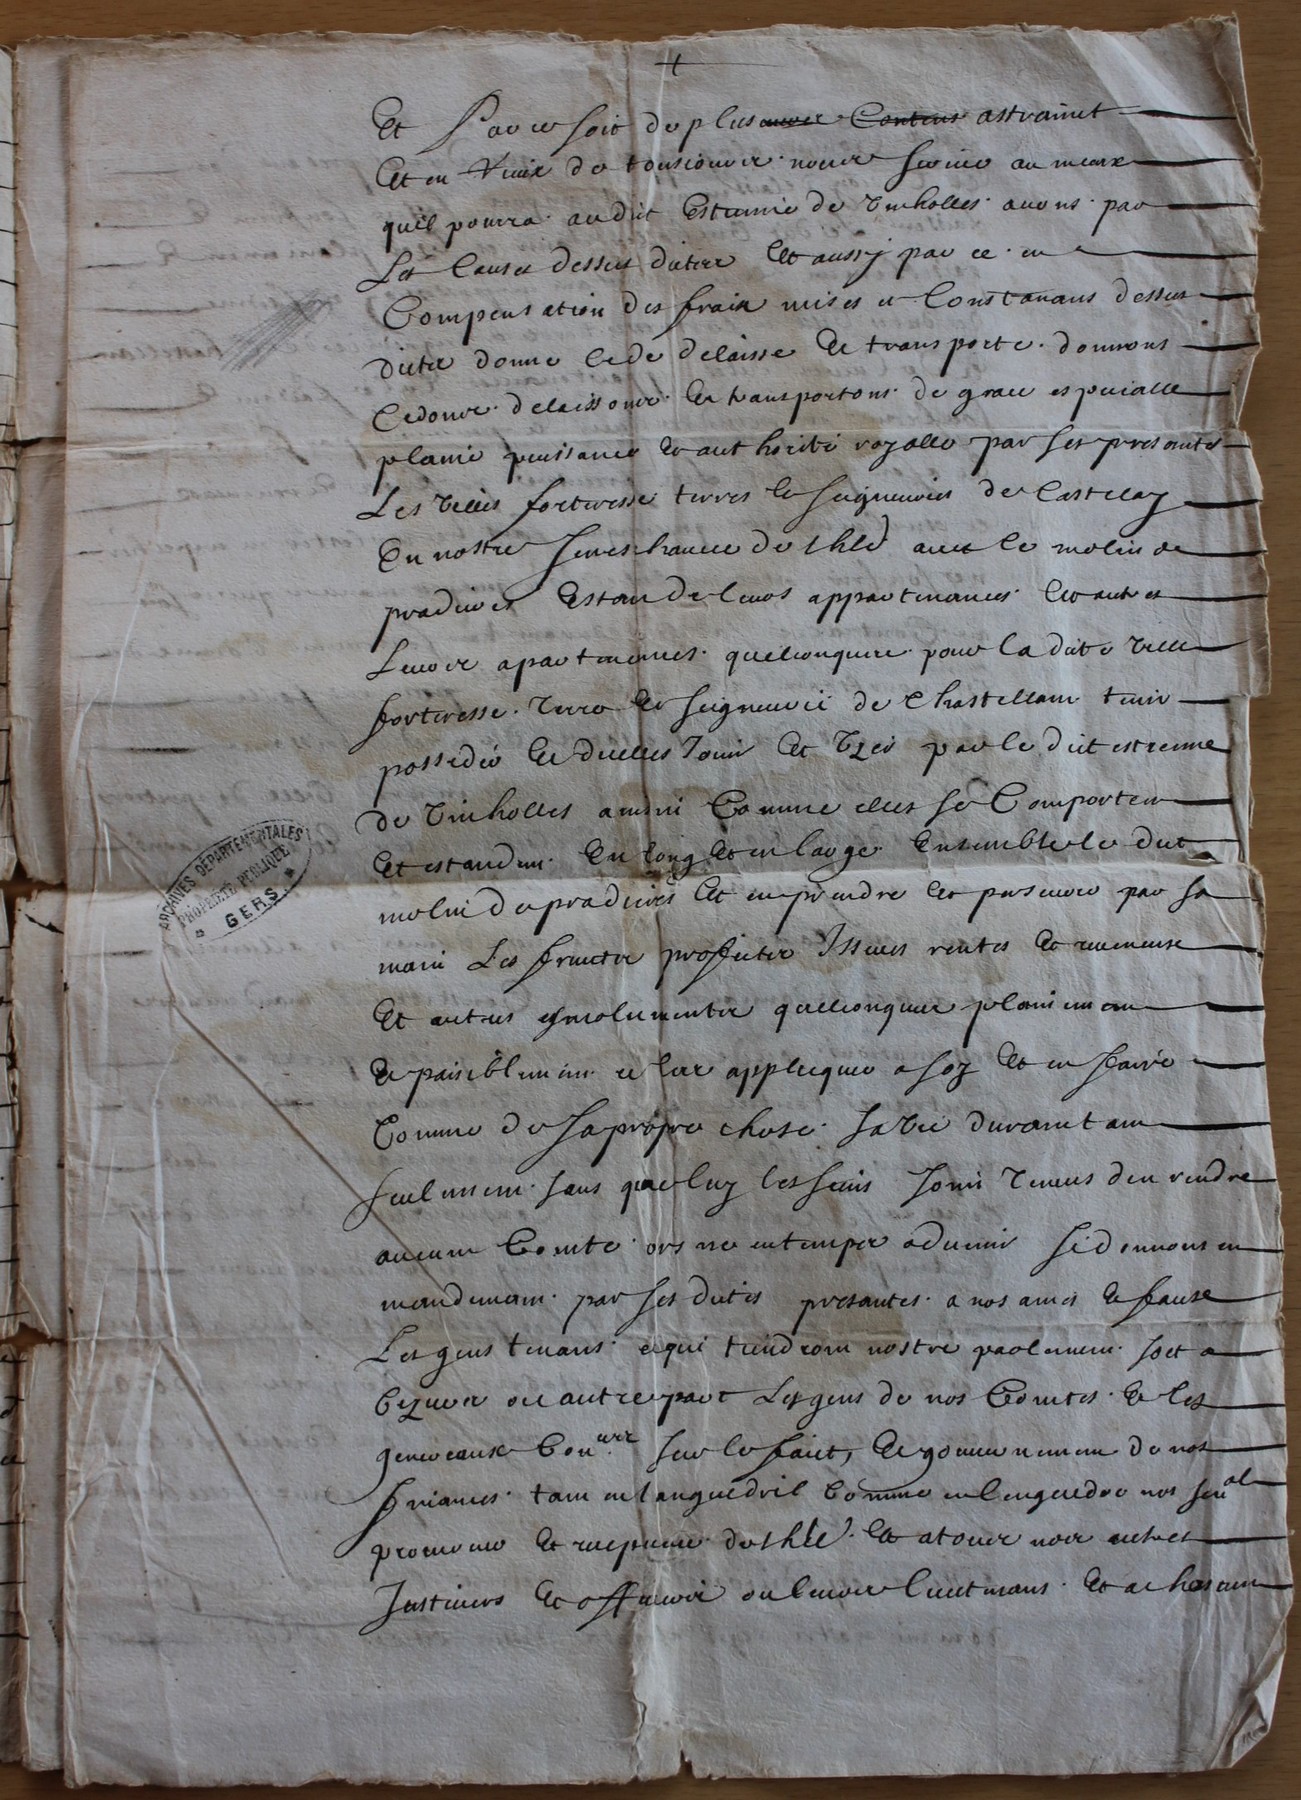 Et par ce soit de plus astraint
Et en de nous service au mieux
quil pourra audit Estienne de Vinholles avons par
Les Causes dessus dictes Et aussy par ce en
Compensation des fraix mises et Constanans dessus
dictes donne cede delaisse Et transporte donnons
Cedons delaissons Et transportons de grace especialle
plaine puissance Et authorité royalle par ses presantes
Les villes forteresse terres Et seigneuries de Castelay
En nostre seneschaucee de thle avec le molin de
pradieres Estan de leurs appartenances Et autres
Leurs apartenances quelconques pour la dite ville
forteresse terre Et seigneurie de Chastellam tenir
posseder Et dicelles Jouir Et Vzer par le dit estienne
de Vinholles ainsin Comme elles se Comportent
Et estanden En long Et en large Ensemble le dit
molin de pradieres Et en prendre Et persevoir par sa
main Les fructz profictz Issues rentes Et revenus
Et autres esmolumentz quelconques plainement
Et paisiblement et les applicquer a soy Et en faire
Comme de sa propre chose sa vie durant tant
seulement sans que luy les siens soint tenus den rendre
aucun Comte ors ne entemps advenir si donnons en
mandemant par ses dites presantes a nos ames Et feaux
Les gens tenans et qui tiendront nostre parlement soit a
beziers ou autre part Les gens de nos Comtes Et les
generaux Con.ers sur le faict, Et gouvernement de nos
finances tant en languedoil Comme en lenguedoc nos sen.al
procureur Et recepveur de thle Et a tous nos autres
Justiciers Et officiers ou leurs lieutenans Et a chascun
ARCHIVES DÉPARTEMENTALES
PROPRIÉTÉ PUBLIQUE
GERS